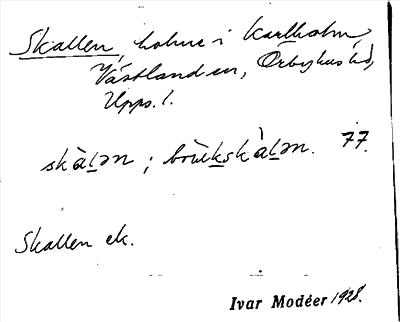 Skallen, holme i Karlholm,
Västland sn, Örbyhus hd,
Upps. l.
skàlən ; brùkskàlən. 77.
Skallen ek.
Ivar Modéer 1928.